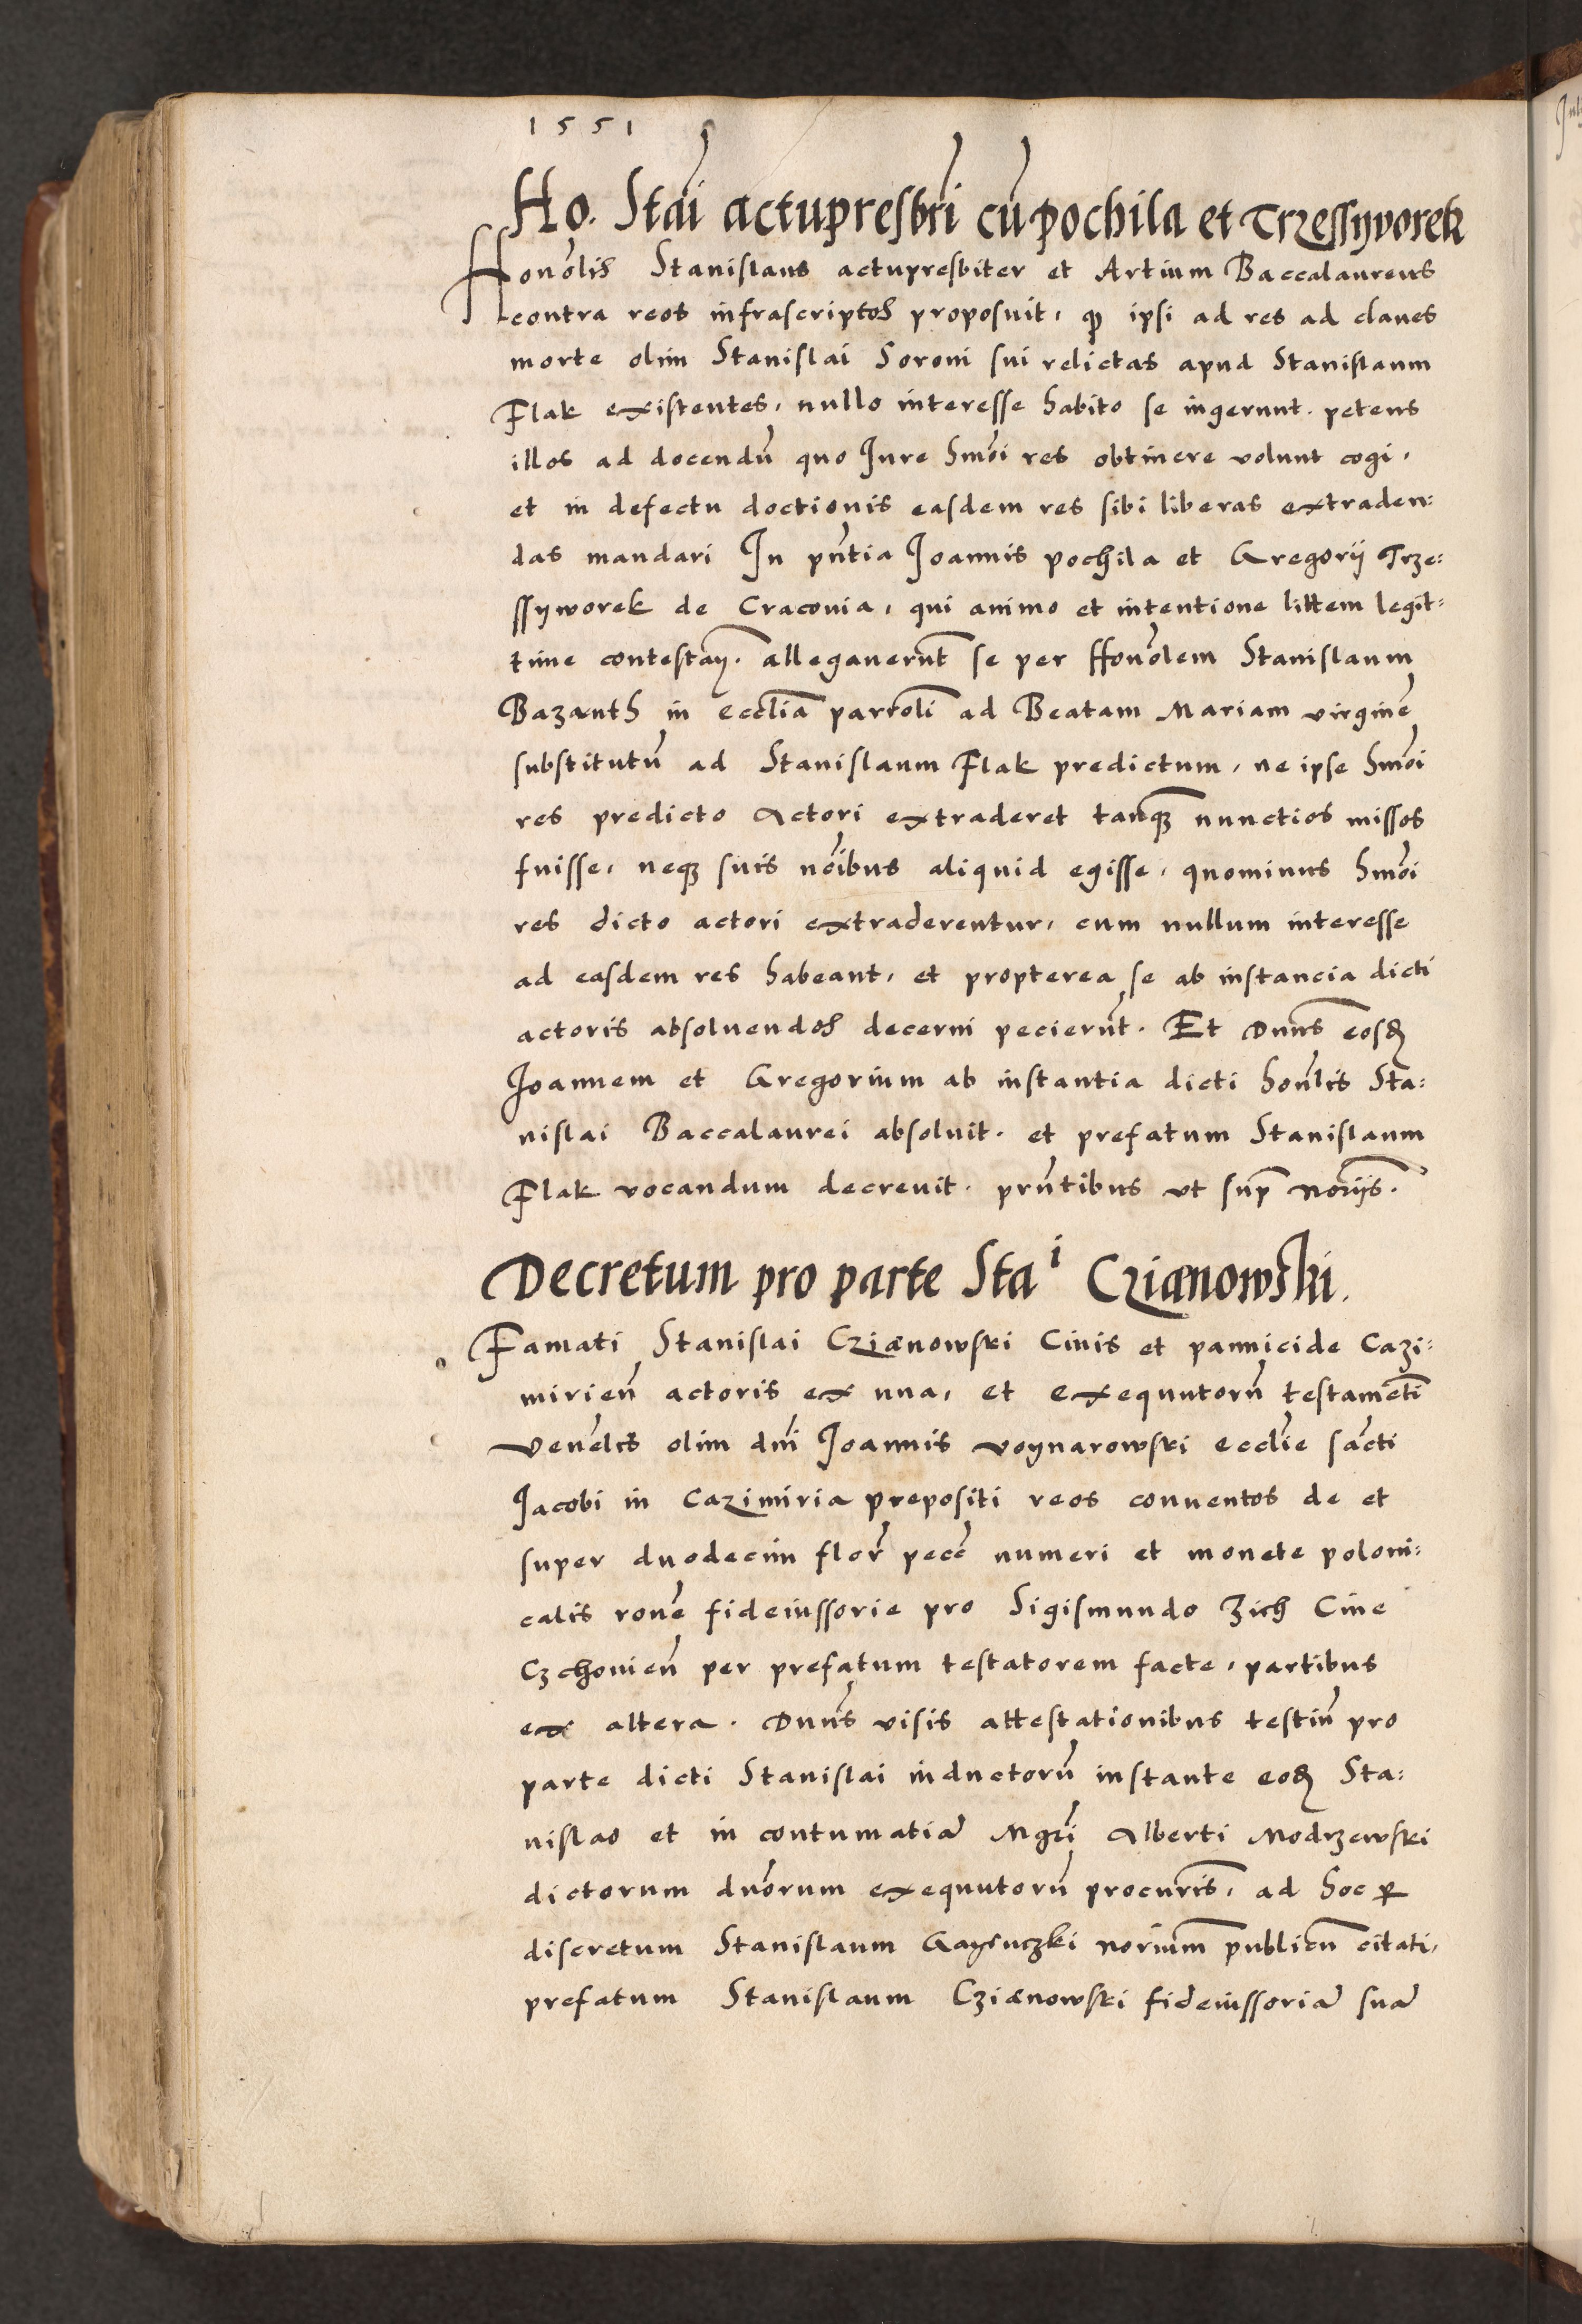 1551
Ho. Stai actupresbri cu pochila et Trzessyvorek
Honolis Stanislaus actupresbiter et Artium Baccalaureus
contra reos infrascriptos proposuit, qd ipsi ad res ad claues
morte olim Stanislai Soroni sui relictas apud Stanislaum
Flak existentes, nullo interesse habito se ingerunt. petens
illos ad docendu quo Jure hmoi res obtinere volunt cogi,
et in defectu doctionis easdem res sibi liberas extraden:
das mandari In pntia Joannis pochila et Gregorij Trze:
ssyworek de Craconia, qui animo et intentione littem legit:
time contestay. allegauerunt se per Honolem Stanislaum
Bazanth in ecclia parrolī ad Beatam Mariam virgine
substitutu ad Stanislaum Flak predictum, ne ipse hmoi
res predicto Actori extraderet tanq nunctios missos
fuisse, neq suis noibus aliquid egisse, quominus hmoi
res dicto actori extraderentur, cum nullum interesse
ad easdem res habeant, et propterea se ab instancia dicti
actoris absoluendos decerni pecierunt. Et Dnns eosd
Joannem et Gregorium ab instantia dicti honlis Sta:
nislai Baccalaurei absoluit. et prefatum Stanislaum
Flak vocandum decreuit. prntibus vt sup noriis.
Decretum pro parte Sta i Czianowski.
Famati Stanislai Czianowski Ciuis et pannicide Cazi:
mirien actoris ex una, et exequutoru testamenti
venelis olim dni Joannis voynarowski ecclie sacti
Jacobi in Cazimiria prepositi reos conuentos de et
super duodecim flor pecc numeri et monete poloni:
calis rone fideiussorie pro Sigismundo Zich Ciue
Czchouien per prefatum testatorem facte, partibus
ex altera. Dnns visis attestationibus testiu pro
parte dicti Stanislai inductoru instante eod Sta:
nislao et in contumatia Mgri Alberti Modrzewski
dictorum duorum exequutoru procuris, ad hoc p
discretum Stanislaum Gayenczki norium publicu citati,
prefatum Stanislaum Czianowski fideiussoria sua